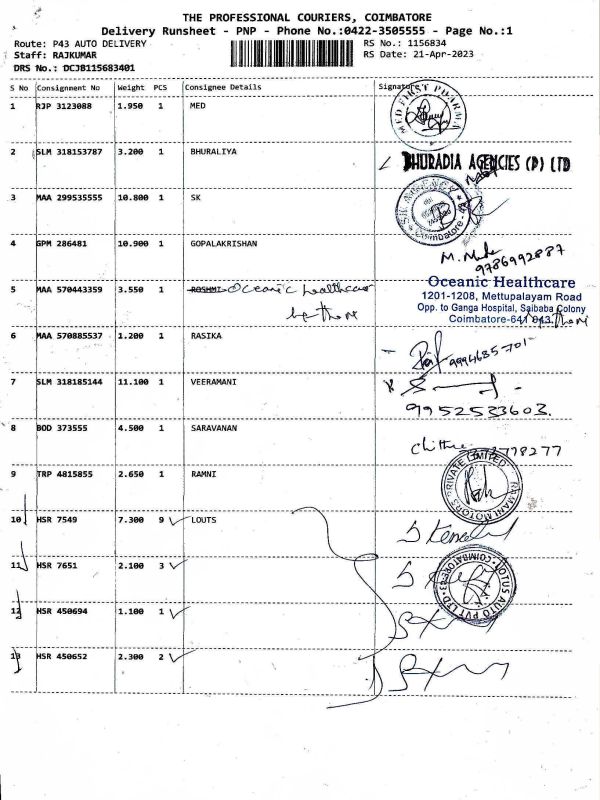 THE PROFESSIONAL COURIERS, COIMBATORE
Delivery Runsheet - PNP - Phone No.:0422-3505555 - Page No.:1
Route: P43 AUTO DELIVERY
RS No.: 1156834
Staff: RAJKUMAR
RS Date: 21-Apr-2023
DRS No.: DCJB115683401
S No Consignment No Weight PCS Consignee Details Signature
1 RJP 3123088 1.950 1 MED
MED FIRST PHARMA
2 SLM 318153787 3.200 1 BHURALIYA
BHURADIA AGENCIES (P) LTD
3 MAA 299535555 10.800 1 SK
SK AGENCY
Coimbatore
4 GPM 286481 10.900 1 GOPALAKRISHAN
9786992887
5 MAA 570443359 3.550 1 ROSHMI Oceanic healthcare
Oceanic Healthcare
1201-1208, Mettupalayam Road
Opp. to Ganga Hospital, Saibaba Colony
Coimbatore-641 043.
6 MAA 570885537 1.200 1 RASIKA
7 SLM 318185144 11.100 1 VEERAMANI
9952533603.
8 BOD 373555 4.500 1 SARAVANAN
778277
9 TRP 4815855 2.650 1 RAMNI
RAMANI MOTORS PRIVATE LIMITED
10 HSR 7549 7.300 9 LOUTS
11 HSR 7651 2.100 3
LOTUS AUTO PVT LTD COIMBATORE-43
12 HSR 450694 1.100 1
13 HSR 450652 2.300 2